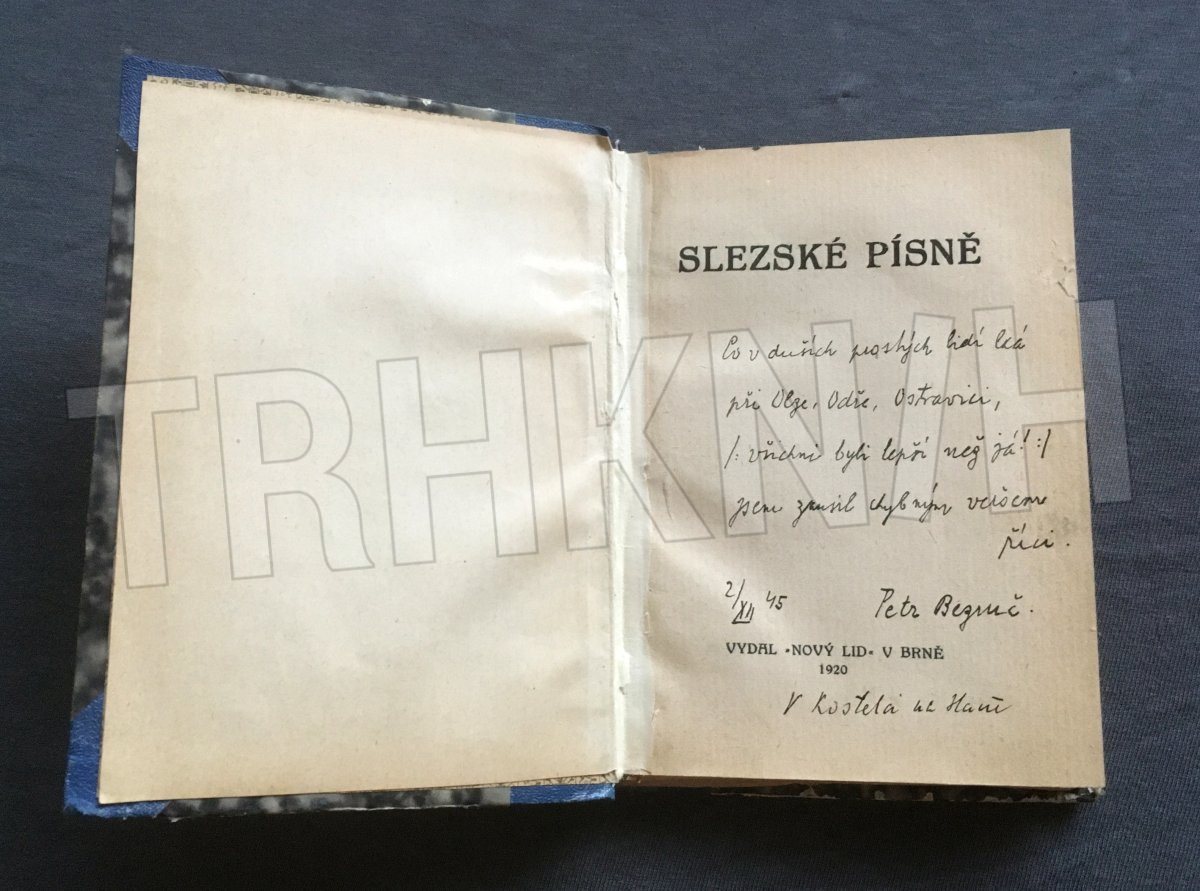 SLEZSKÉ PÍSNĚ
Co v duších prostých lidí lká
při Olze, Odře, Ostravici,
/: všichni byli lepší než já! :/
jsem zkusil chybným veršem
říci.
2/XII 45
Petr Bezruč.
VYDAL „NOVÝ LID“ V BRNĚ
1920
V Kostelci na Hané
TRHKNIH